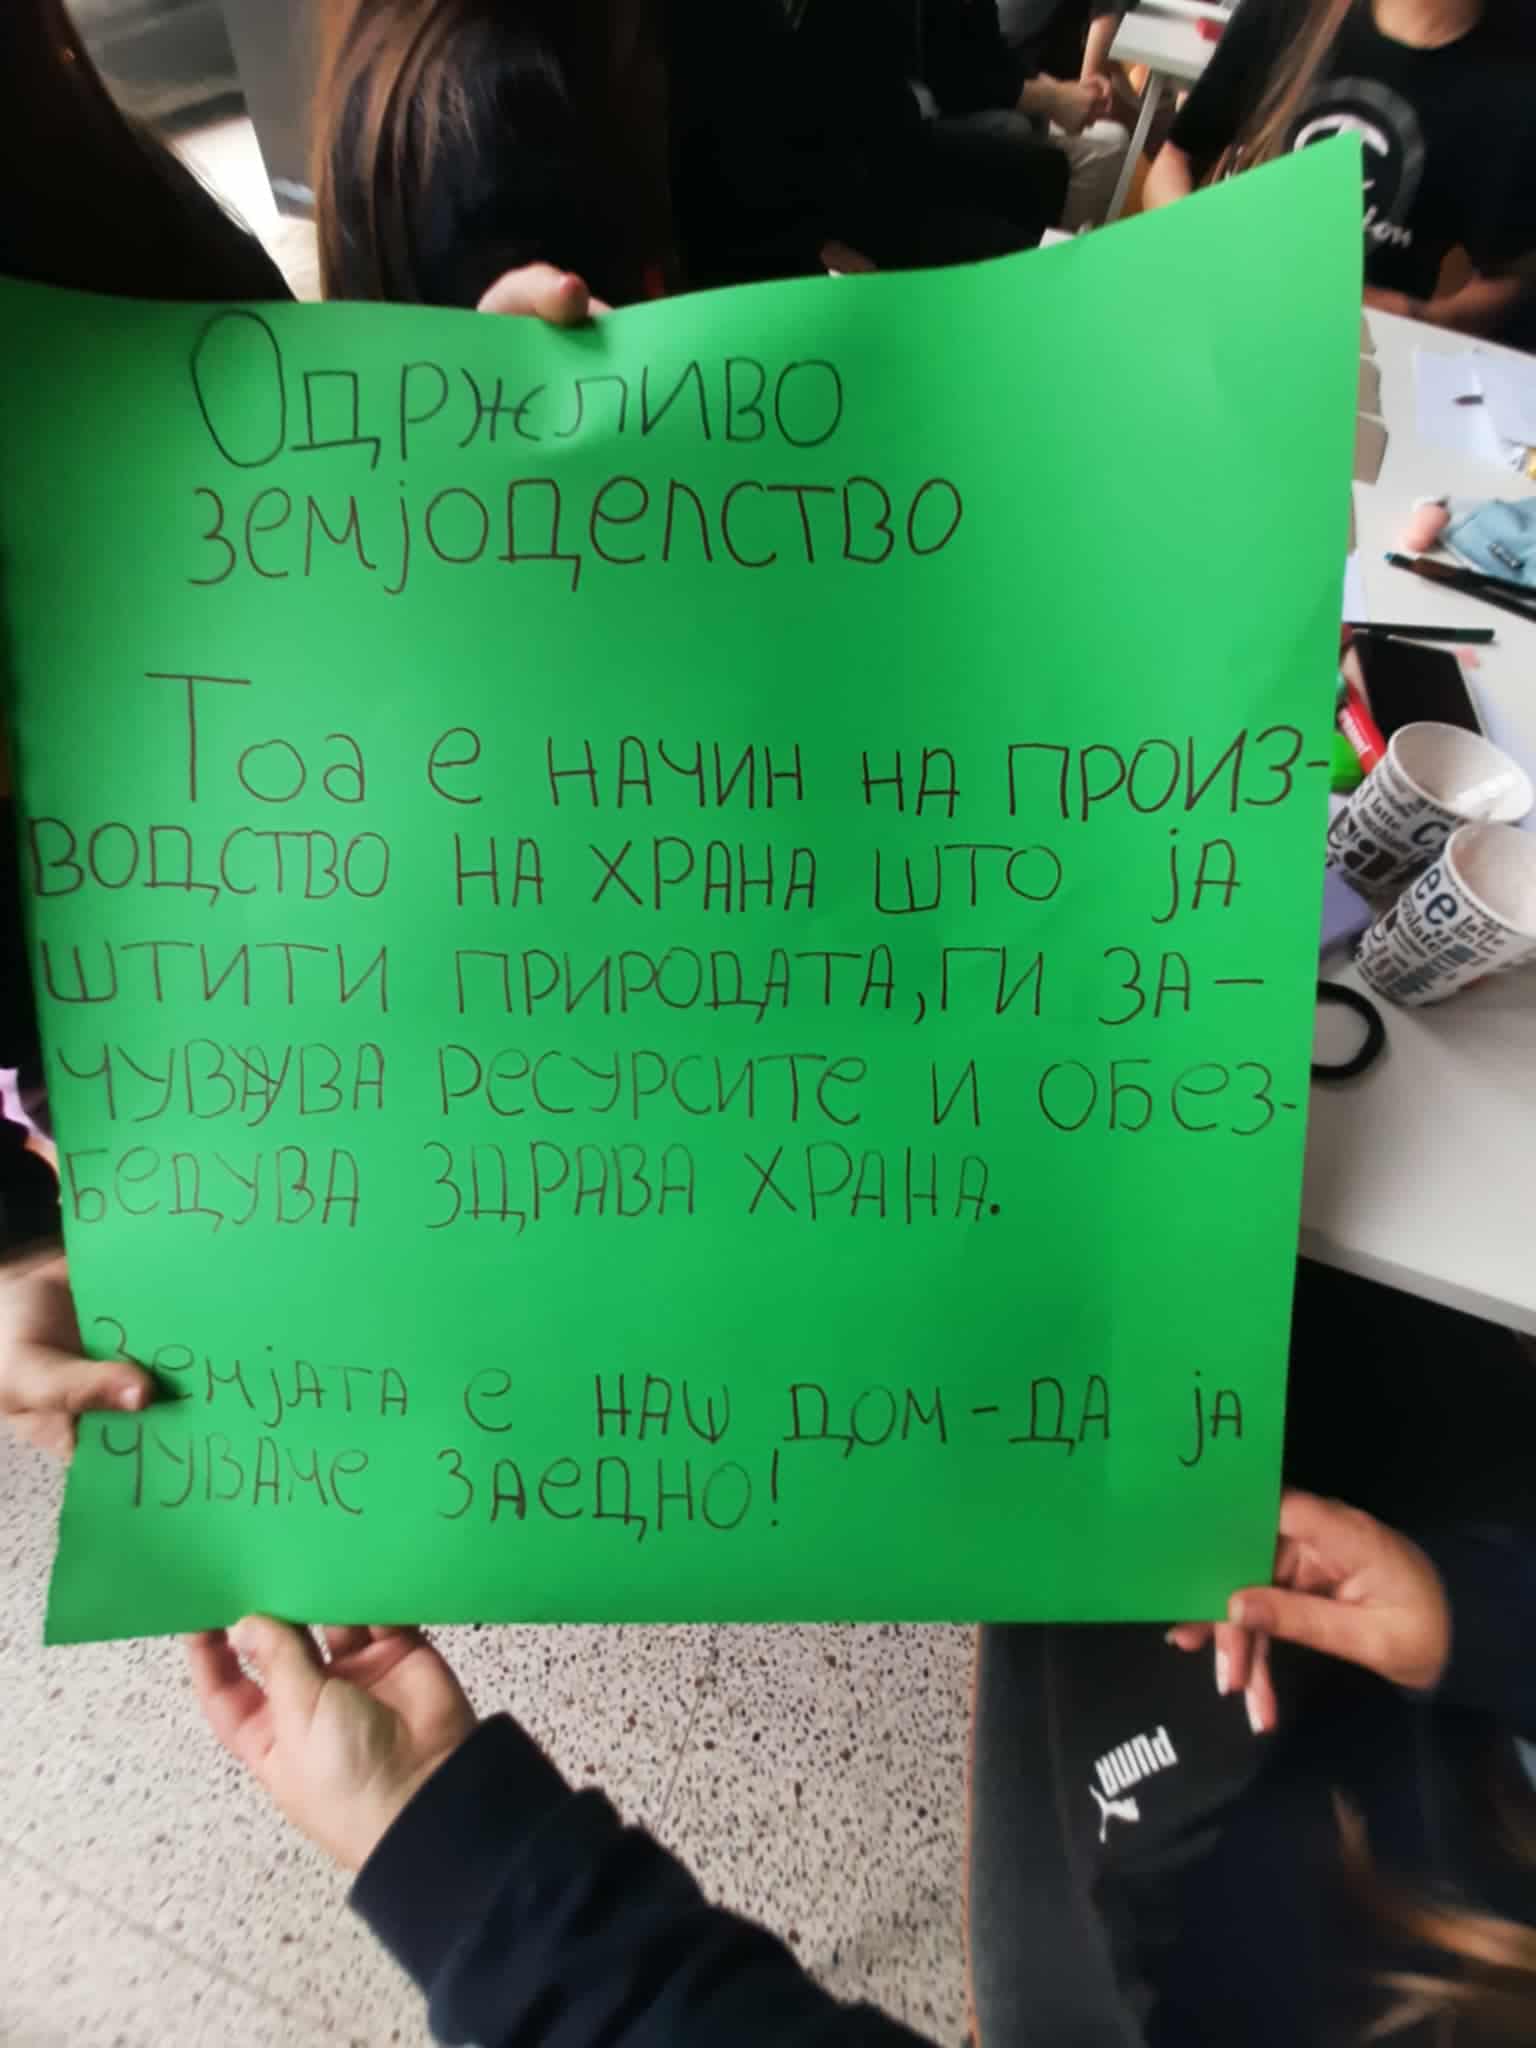 Одрживо
земјоделство
Тоа е начин на произ-
водство на храна што ја
штити природата, ги за-
чувува ресурсите и обез-
бедува здрава храна.
Земјата е наш дом - да ја
чуваме заедно!
PUMA